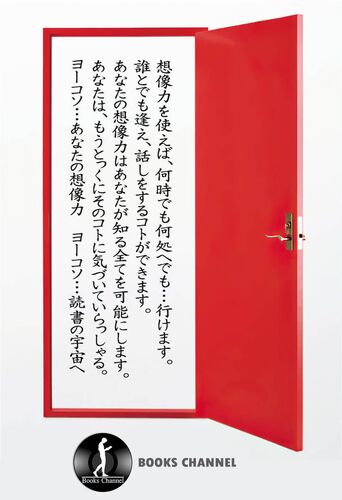 想像力を使えば、何時でも何処へでも…行けます。
誰とでも逢え、話しをするコトができます。
あなたの想像力はあなたが知る全てを可能にします。
あなたは、もうとっくにそのコトに気づいていらっしゃる。
ヨーコソ…あなたの想像力　ヨーコソ…読書の宇宙へ
Books Channel
BOOKS CHANNEL